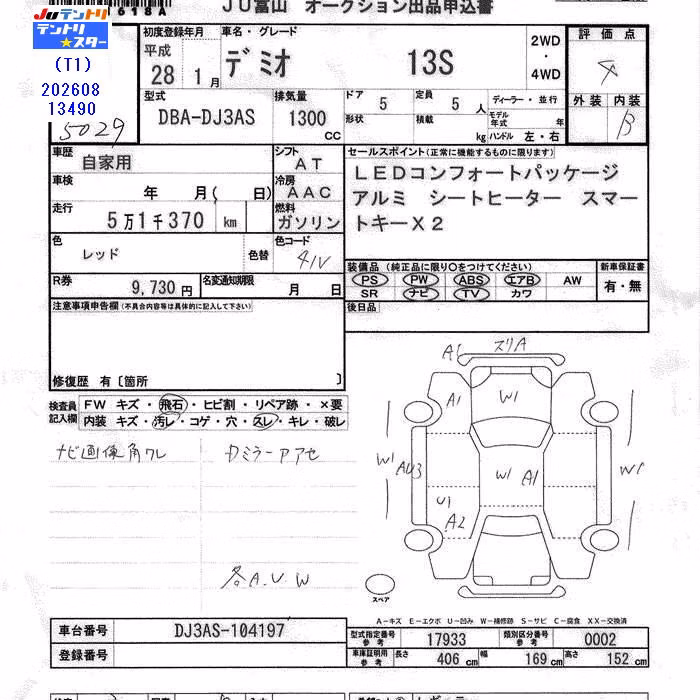 618A
JU富山 オークション出品申込書
JUテントリ
テントリ★スター
(T1)
202608
13490
5029
初度登録年月
平成
28 1月
車名・グレード
デミオ 13S
2WD
・
4WD
評価点
4
外装 内装
B
型式
DBA-DJ3AS
排気量
1300
CC
ドア 5
定員 5 人
ディーラー・並行
形状
積載
kg
モデル年式 年
ハンドル 左・右
車歴
自家用
シフト
AT
車検
年 月(日)
冷房
AAC
走行
5万1千370 km
燃料
ガソリン
色
レッド
色替
色コード
41V
R券
9,730 円
名変通知期限
月 日
セールスポイント(正常に機能するものに限ります)
LEDコンフォートパッケージ
アルミ シートヒーター スマー
トキーX2
装備品(純正品に限り○をつけてください)
新車保証書
PS PW ABS エアB AW
SR ナビ TV カワ
有・無
後日品
注意事項申告欄(不具合内容等は具体的に記入して下さい)
修復歴 有〔箇所 〕
検査員
記入欄
FW キズ・飛石・ヒビ割・リペア跡・×要
内装 キズ・汚レ・コゲ・穴・スレ・キレ・破レ
ナビ画像角クレ
カミラーアアセ
各A.U.W
A1
スリA
A1
W1
W1
AU3
W1
A1
U1
A2
W1
スペア
A－キズ E－エクボ U－凹み W－補修跡 S－サビ C－腐食 XX－交換済
車台番号
DJ3AS-104197
登録番号
型式指定番号
参考
17933
類別区分番号
参考
0002
車庫証明用
参考
長さ 406 cm
幅 169 cm
高さ 152 cm